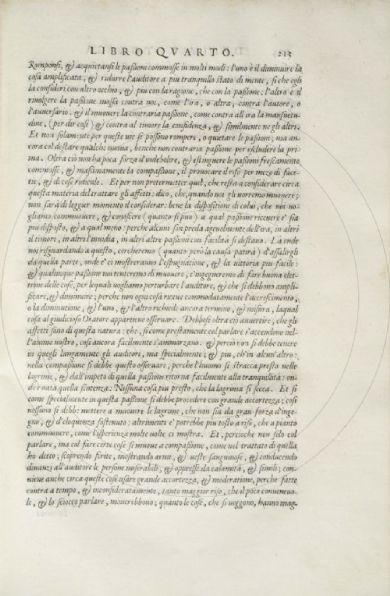 LIBRO QVARTO. 213
Romponsi, & acquetansi le passioni commosse in molti modi: l'uno è il diminuire la
cosa amplificata, & ridurre l'auditore a piu tranquillo stato di mente, si che egli
la consideri con altro occhio, & piu con la ragione, che con la passione: l'altro è il
riuolgere la passione mossa contra noi, come l'ira, o altra, contra l'autore, o
l'auuersario. & il muouere la contraria passione, come contra all'ira la mansuetu-
dine, (per dir cosi) & contra al timore la confidenza, & similmente ne gli altri.
Et non solamente per queste uie si possono rompere, o quetare le passioni; ma an-
cora col destare qualche nuoua, benche non contraria passione per escludere la pri-
ma. Oltra ciò non ha poca forza d'indebolire, & estinguere le passioni frescamente
commosse, & massimamente la compassione, il prouocare il riso per mezo di face-
tie, & di cose ridicole. Et per non pretermettere quel, che resta a considerare circa
questa materia del trattare gli affetti: dico, che, quando noi gli uorremo muouere;
non sarà di leggier momento il considerar bene la dispositione di colui, che noi uo-
gliamo commuouere, & conoscere (quanto si può) a qual passione riceuere e' sia
piu disposto, & a qual meno: perche alcuni son preda ageuolmente dell'ira, in altri
il timore, in altri l'inuidia, in altri altre passioni con facilità si destano. La onde
noi risguardando a questo, cercheremo (quanto però la causa patirà) d'assalirgli
da quella parte, onde c'è mostreranno l'espugnatione, & la uittoria piu facile:
& qualunque passione noi tenteremo di muouere, c'ingegneremo di fare buona elet-
tione delle cose, per le quali uogliamo perturbare l'auditore, & che si debbono ampli-
ficare, & diminuire; perche non ogni cosa riceue commodamente l'accrescimento,
o la diminutione, & l'uno, & l'altro richiede ancora termine, & misura, la qual
cosa al giudicioso Oratore appartiene osseruare. Debbesi oltra ciò auuertire, che gli
affetti sono di questa natura: che, si come prestamente col parlare s'accendono nel-
l'animo nostro, cosi ancora facilmente s'ammorzano. & perciò non si debbe tenere
in quegli lungamente gli auditori, ma specialmente; & piu, ch'in alcun'altro;
nella compassione si debbe questo osseruare, perche l'huomo si stracca presto nelle
lagrime, & dall'impeto di quella passione ritorna facilmente alla tranquilità: on-
de è nata quella sentenza: Nessuna cosa piu presto, che la lagrima si secca. Et si
come specialmente in questa passione si debbe procedere con grande accortezza; cosi
nessuno si debbe mettere a muouere le lagrime, che non sia da gran forza d'inge-
gno, & d'eloquenza sostenuto; altrimente e' potrebbe piu tosto a riso, che a pianto
commuouere, come l'esperienza molte uolte ci mostra. Et, percioche non solo col
parlare, ma col fare certe cose si muoue a compassione, come nel trattato di quella
ho detto; scoprendo ferite, mostrando arme, & ueste sanguinose, & conducendo
dinanzi all'auditore le persone miserabili; & oppresse da calamità, & simili: con-
uiene anche circa queste cose usare grande accortezza, & moderatione, perche fatte
contra a tempo, & inconsideratamente, tanto maggior riso, che al poco conueneuo-
le, & lo sciocco parlare, mouerebbono; quanto le cose, che si ueggono, hanno mag-